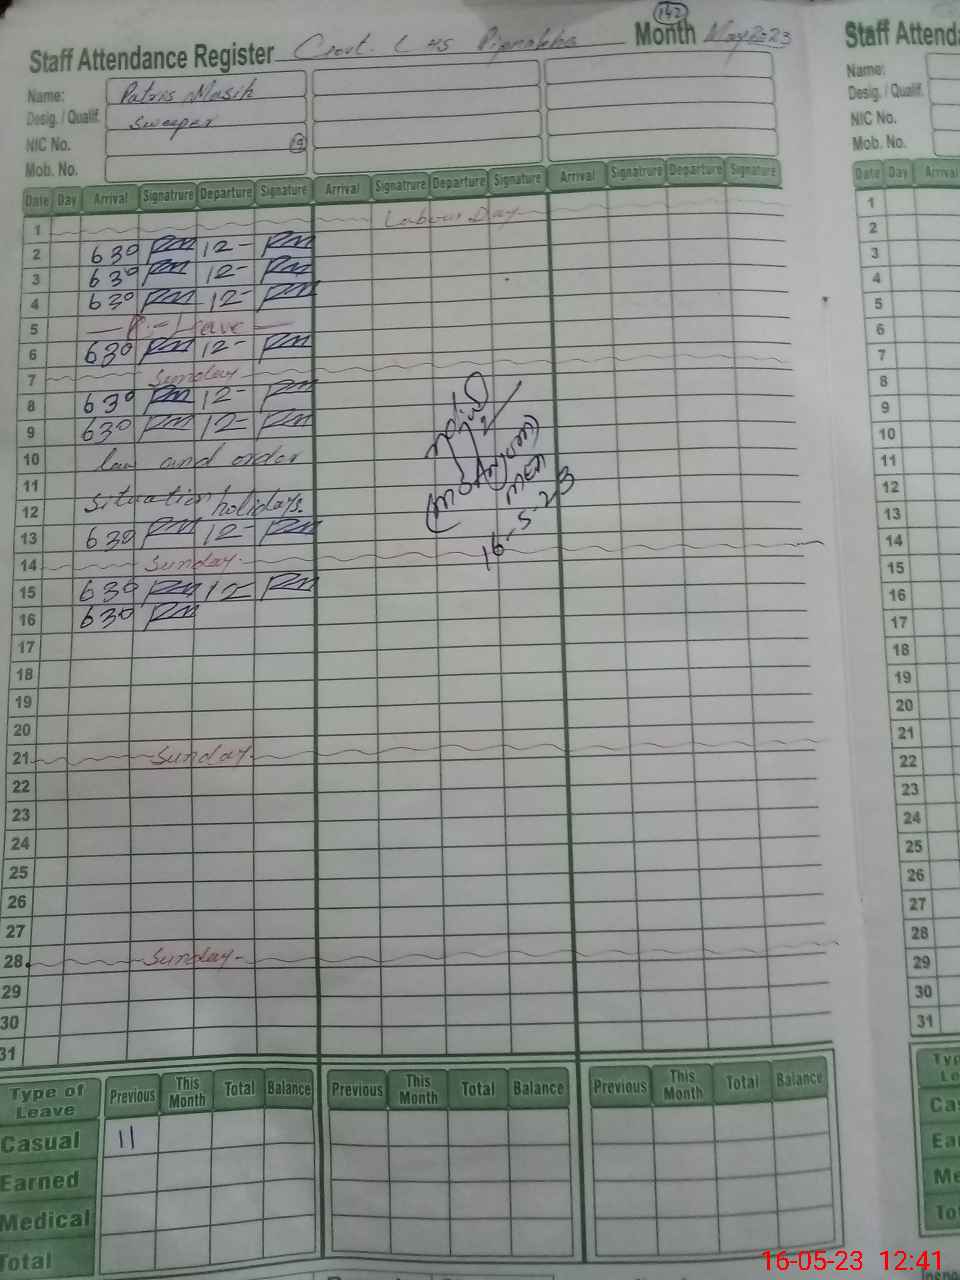 142
Staff Attendance Register Govt. Month May 2023
Name: Patras Masih
Desig. / Qualif. Sweeper
NIC No. 19
Mob. No.
Date Day Arrival Signatrure Departure Signature Arrival Signatrure Departure Signature Arrival Signatrure Departure Signature
1 Labour Day
2 630 PM 12- PM
3 630 PM 12- PM
4 630 PM 12- PM
5 - R - Leave -
6 630 PM 12- PM
7 Sunday
8 630 PM 12- PM
9 630 PM 12- PM
10 law and order
11
12 Situation holidays.
13 630 PM 12- PM
14 Sunday.
15 630 PM 12 PM
16 630 PM
17
18
19
20
21 Sunday.
22
23
24
25
26
27
28 Sunday-
29
30
31
MEA
16-5-23
Type of Leave Previous This Month Total Balance Previous This Month Total Balance Previous This Month Total Balance
Casual 11
Earned
Medical
Total
Staff Attend
Name:
Desig. / Qualif.
NIC No.
Mob. No.
Date Day Arrival
1
2
3
4
5
6
7
8
9
10
11
12
13
14
15
16
17
18
19
20
21
22
23
24
25
26
27
28
29
30
31
Typ
Le
Cas
Ea
Me
To
16-05-23 12:41